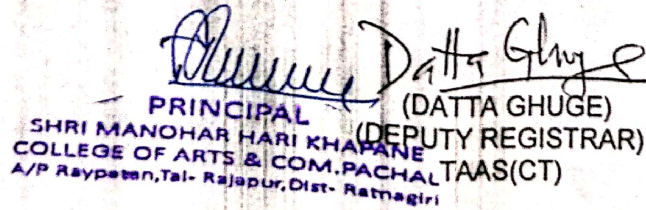 Datta Ghuge
PRINCIPAL
SHRI MANOHAR HARI KHAPANE
COLLEGE OF ARTS & COM.PACHAL
A/P Raypatan,Tal- Rajapur,Dist- Ratnagiri
(DATTA GHUGE)
(DEPUTY REGISTRAR)
TAAS(CT)